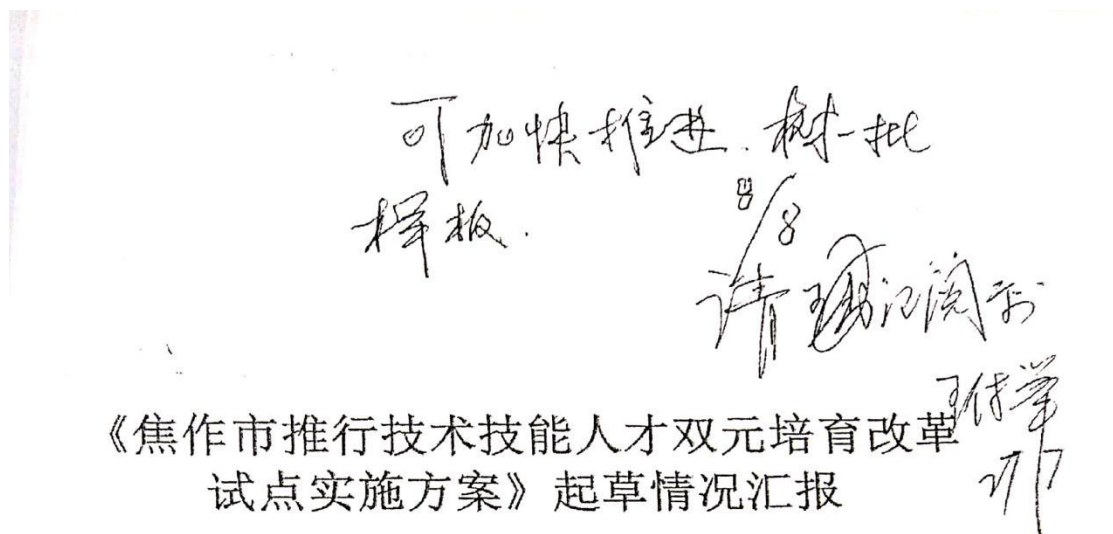 可加快推进.树一批
样板.
8/8
请 阅示
《焦作市推行技术技能人才双元培育改革
试点实施方案》起草情况汇报